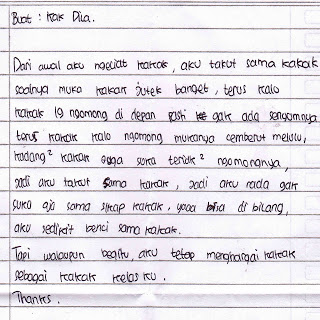 Buat : Kak Dila.
Dari awal aku ngeliat kakak, aku takut sama kakak
soalnya muka kakak jutek banget, terus kalo
kakak lg ngomong di depan pasti gak ada senyumnya
terus kakak kalo ngomong mukanya cemberut melulu,
kadang² kakak juga suka teriak² ngomongnya,
jadi aku takut sama kakak, jadi aku rada gak
suka aja sama sikap kakak, yaaa bisa di bilang,
aku sedikit benci sama kakak.
Tapi walaupun begitu, aku tetap menghargai kakak
sebagai kakak kelas ku.
Thanks.